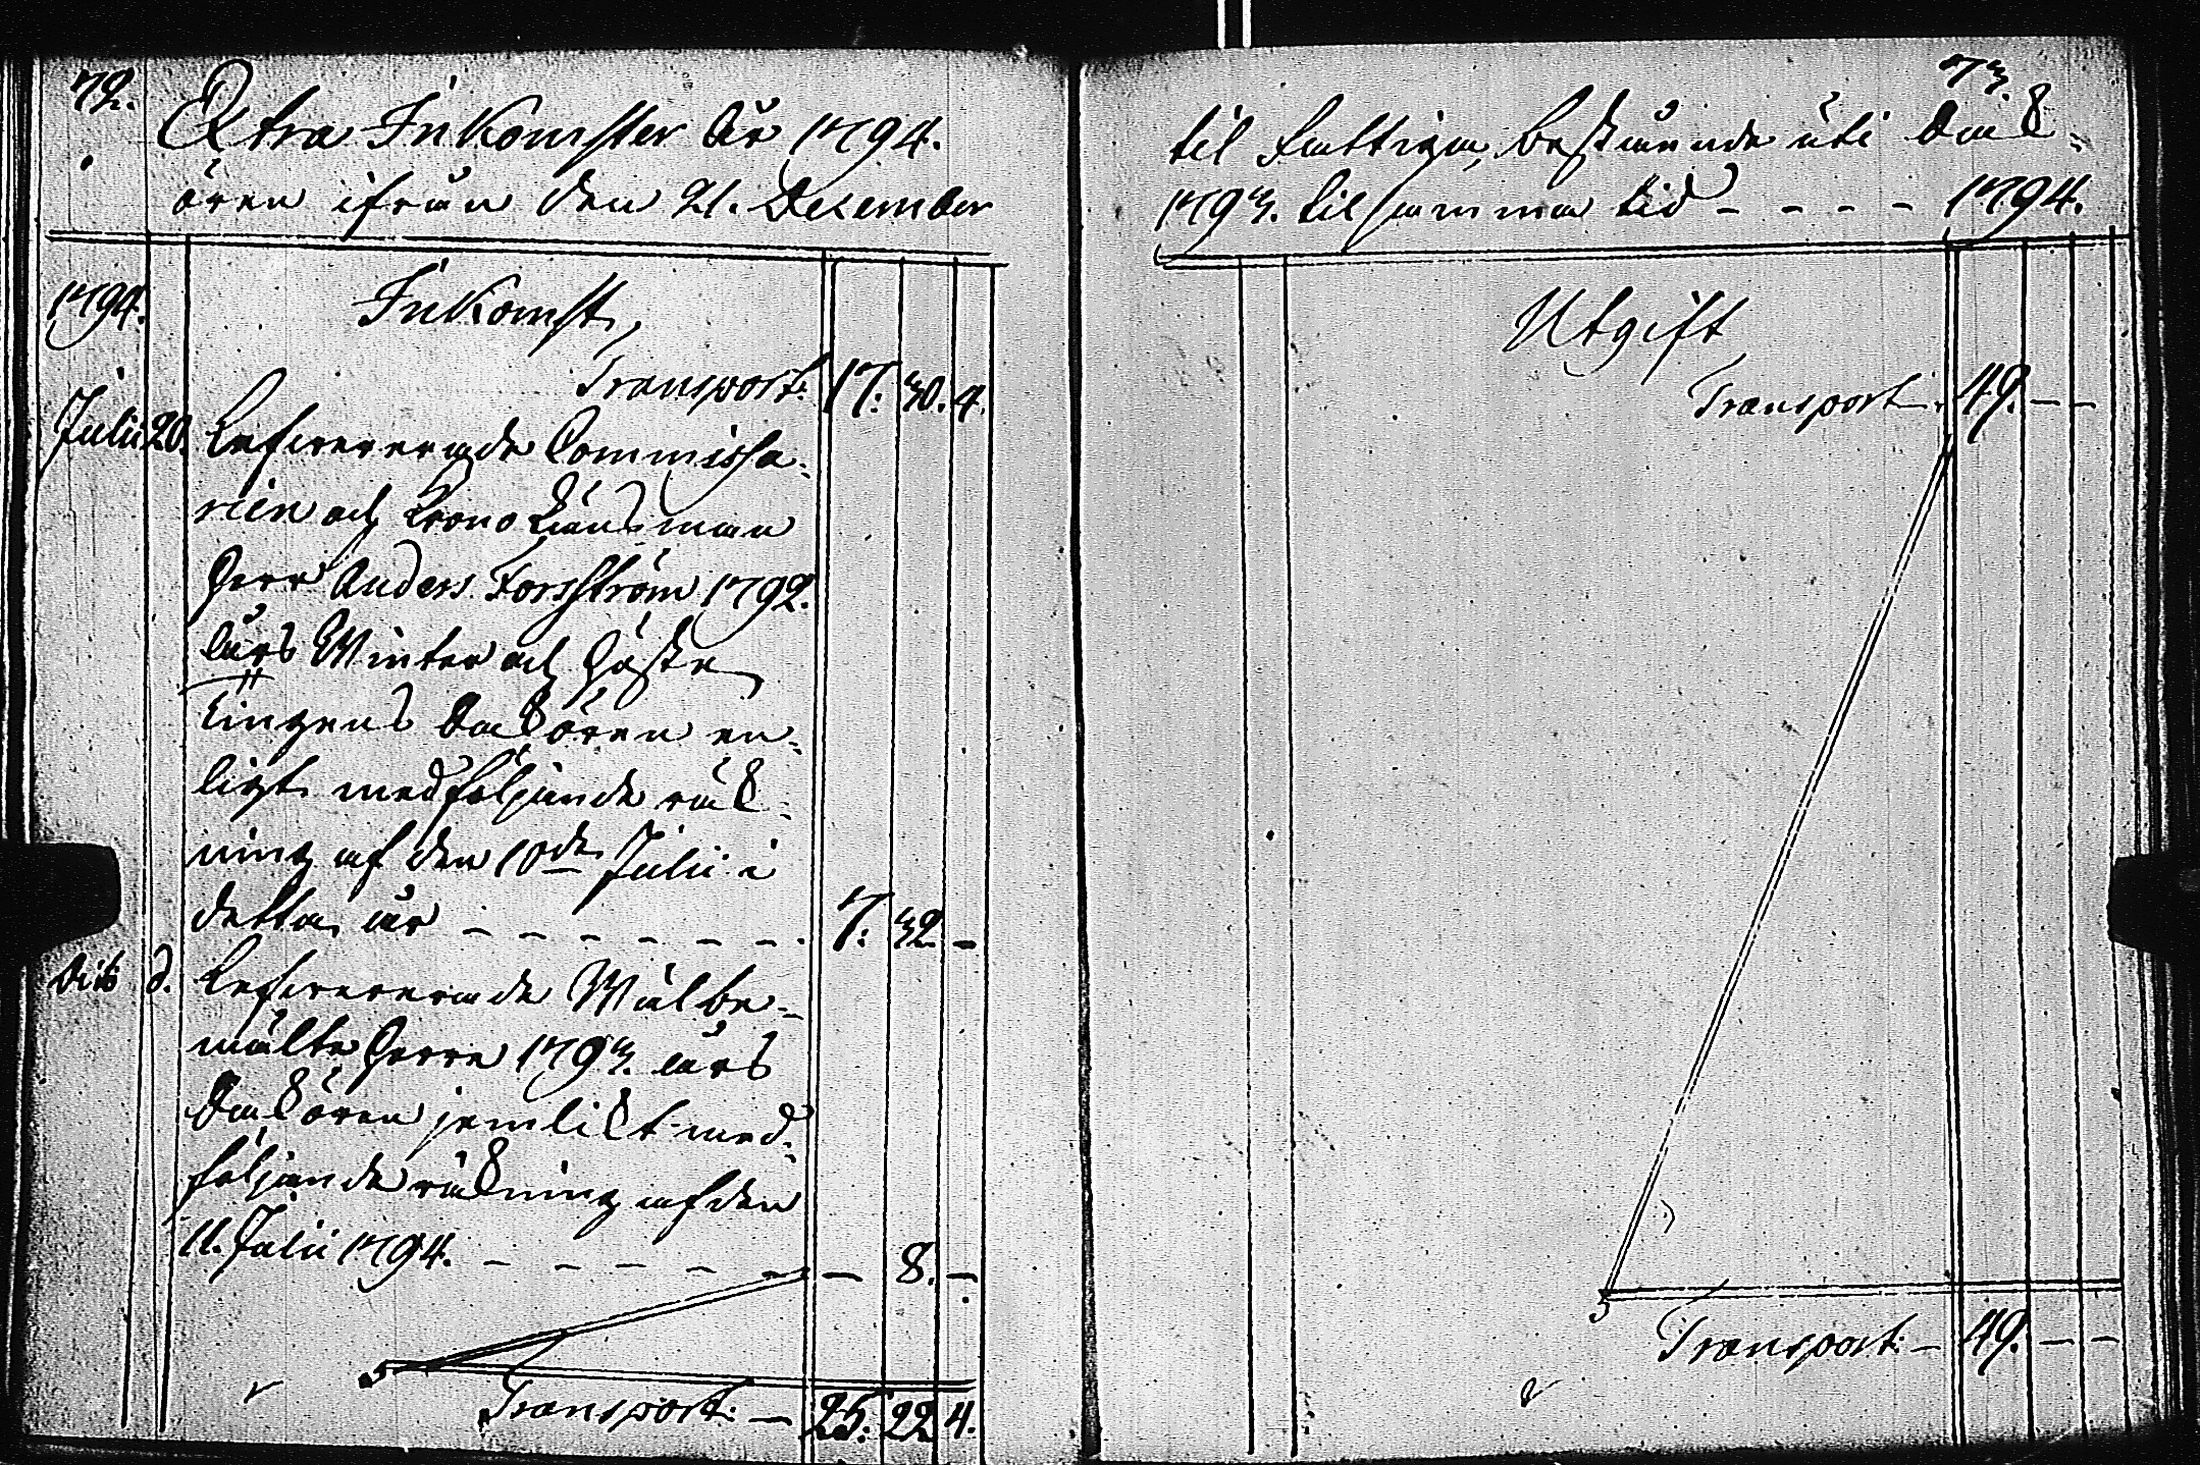 72.
Extra Inkomster År 1794.
ören ifrån den 21. December
1794.
Inkomst,
Transport: 17: 30. 4.
Julii 20. Lefwererade Commissa-
rien och Krono Länsman
Herr Anders Forsström 1792.
Års Winter och Höste
Tingens Sakören en-
ligt medföljande räk-
ning af den 10de Julii i
detta år - - - - - - - 7: 32. -
Dito d. Lefwererade Wälbe-
mälte Herre 1793. års
Sakören jemlikt med-
följande räkning af den
11. Julii 1794. - - - - - - 8. -
Transport: - 25: 22. 4.
73
til Fattiga, bestående uti Sak-
1793. til samma tid - - - - 1794.
Utgift
Transport. 49. - -
Transport: - 49. - -